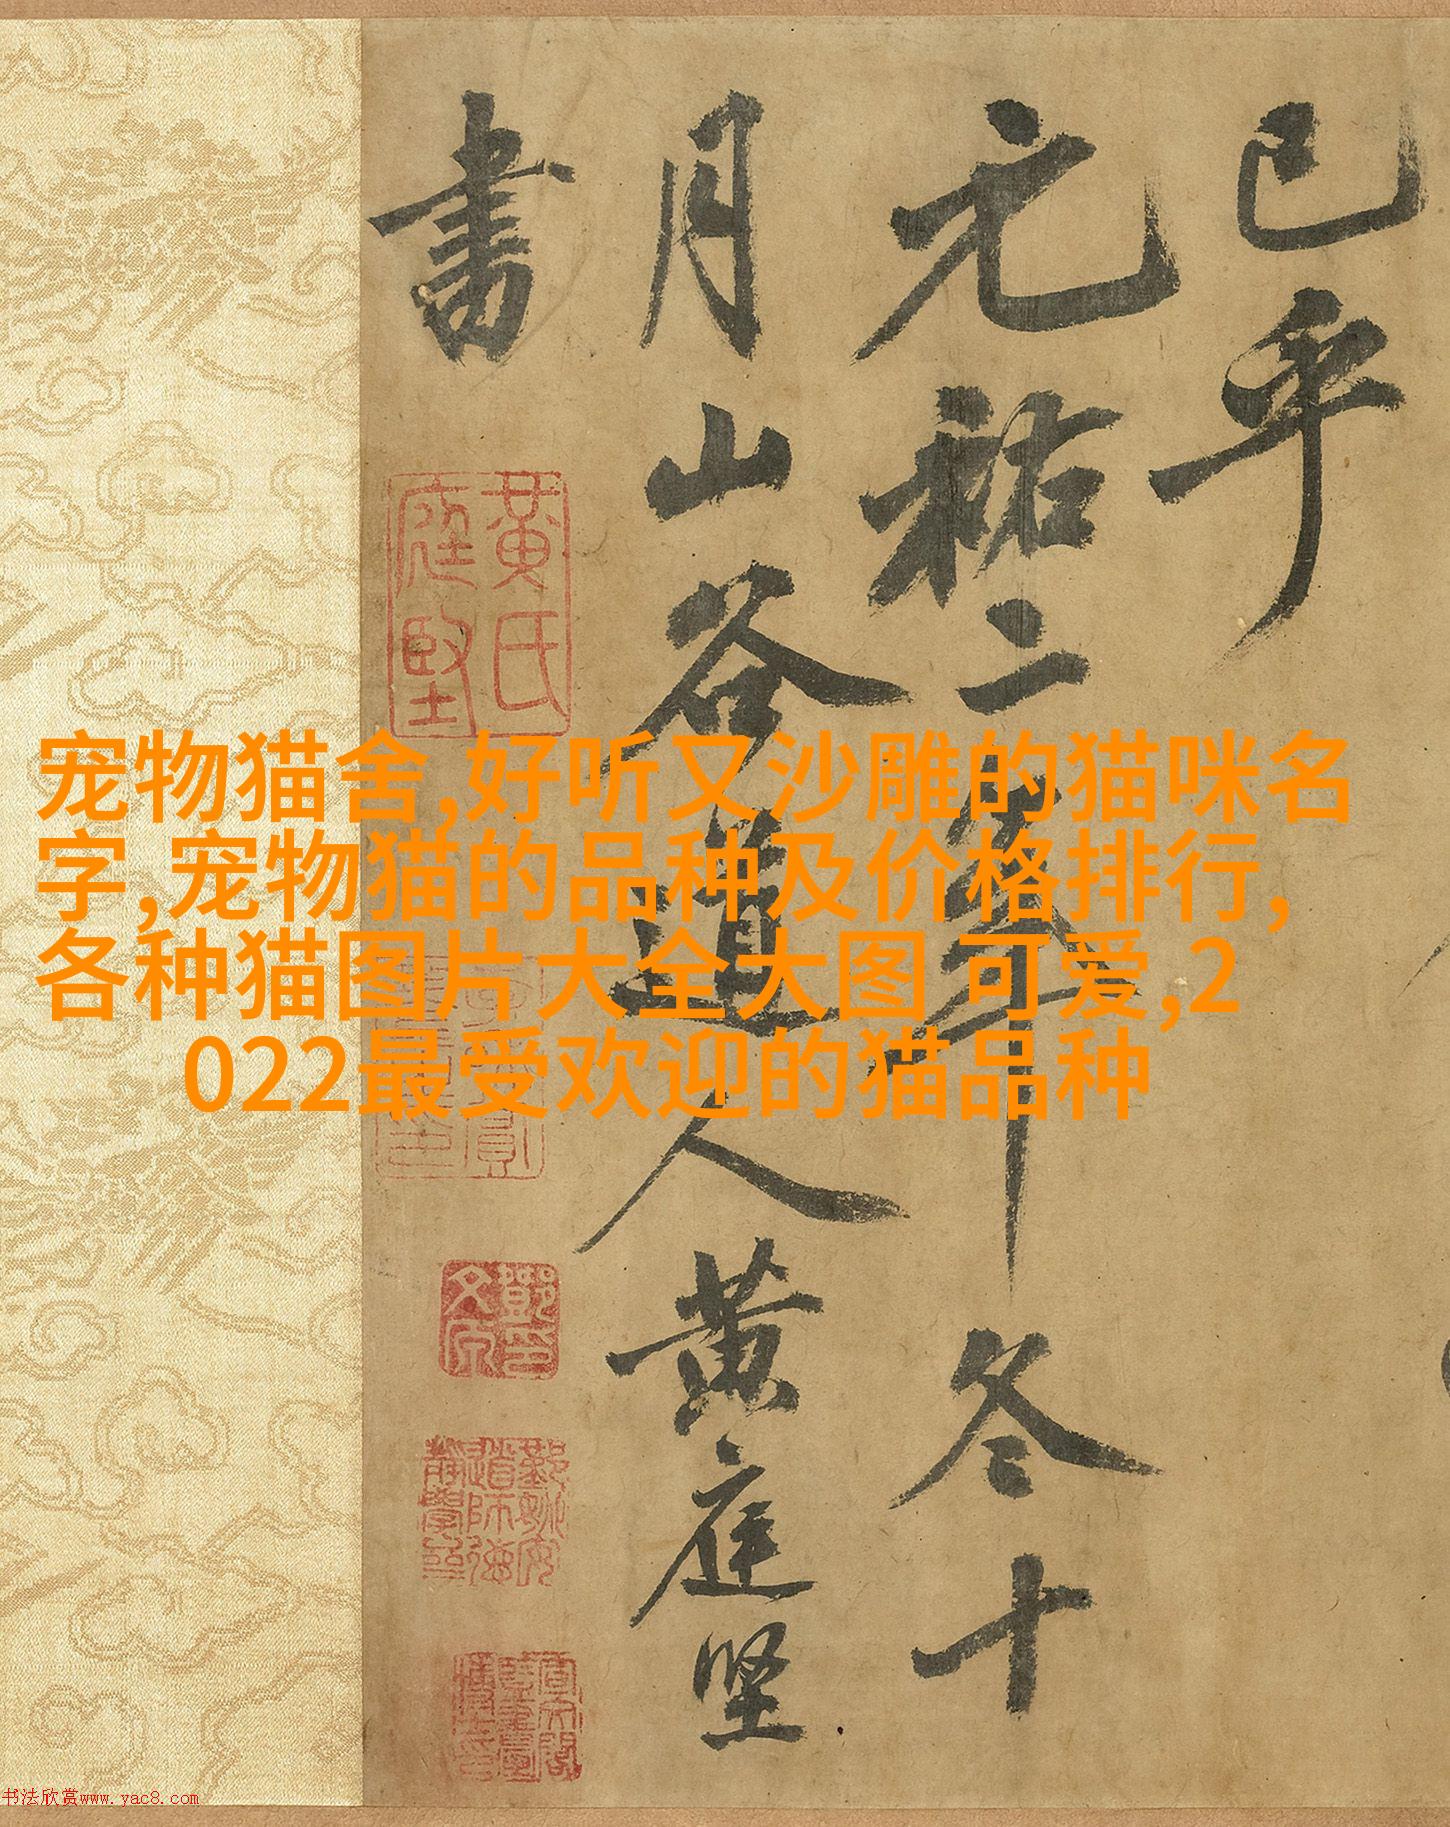 已乎
元祐二年冬十
月山谷道人黄庭坚
書
黄氏
庭坚
宠物猫舍,好听又沙雕的猫咪名
字,宠物猫的品种及价格排行,
各种猫图片大全大图 可爱,2
022最受欢迎的猫品种
书法欣赏www.yac8.com